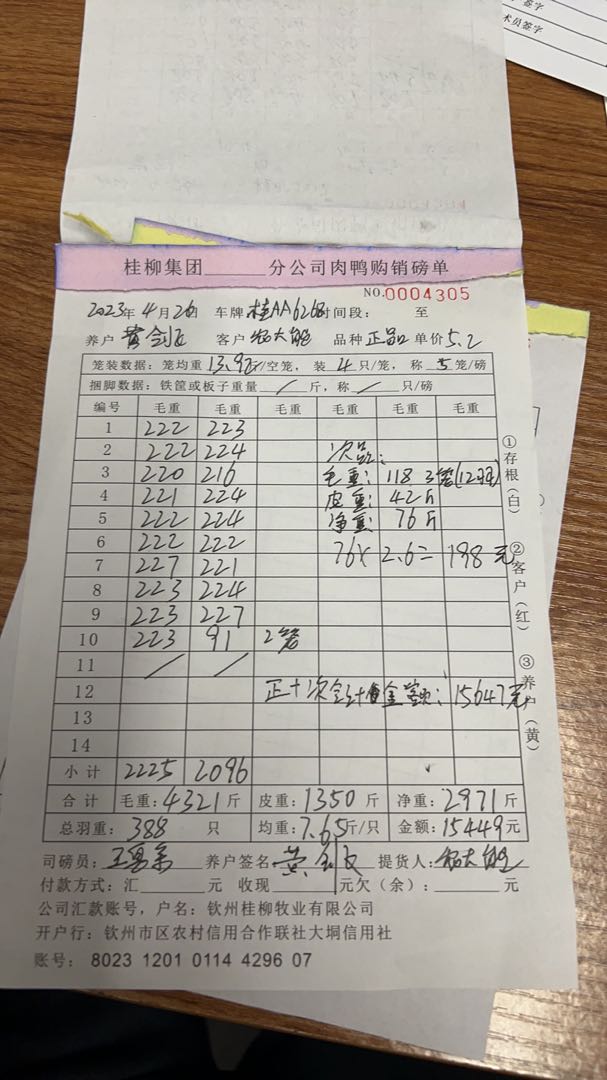 签字
术员签字
桂柳集团______分公司肉鸭购销磅单
NO.0004305
2023年4月26 车牌 桂AA6268 时间段: 至
养户 黄剑 客户 大 品种 正品 单价 5.2
笼装数据:笼均重 13.9斤/空笼,装 4 只/笼,称 5 笼/磅
捆脚数据:铁筐或板子重量 / 斤,称 / 只/磅
编号 毛重 毛重 毛重 毛重 毛重
1 222 223
2 222 224 次品:
3 220 216 毛重: 118 3笼(12羽)
4 221 224 皮重: 42斤
5 222 224 净重: 76斤
6 222 222 76× 2.6= 198元
7 227 221
8 223 224
9 223 227
10 223 91 2笼
11 / /
12 正+次合计金额: 15647元
13
14
小计 2225 2096
合计 毛重:4321斤 皮重:1350斤 净重:2971斤
总羽重:388 只 均重:7.65斤/只 金额:15449元
司磅员:王 养户签名 黄剑 提货人: 大
付款方式:汇______元 收现______元欠(余):______元
公司汇款账号,户名:钦州桂柳牧业有限公司
开户行:钦州市区农村信用合作联社大垌信用社
账号: 8023 1201 0114 4296 07
①存根(白)
②客户(红)
③养户(黄)